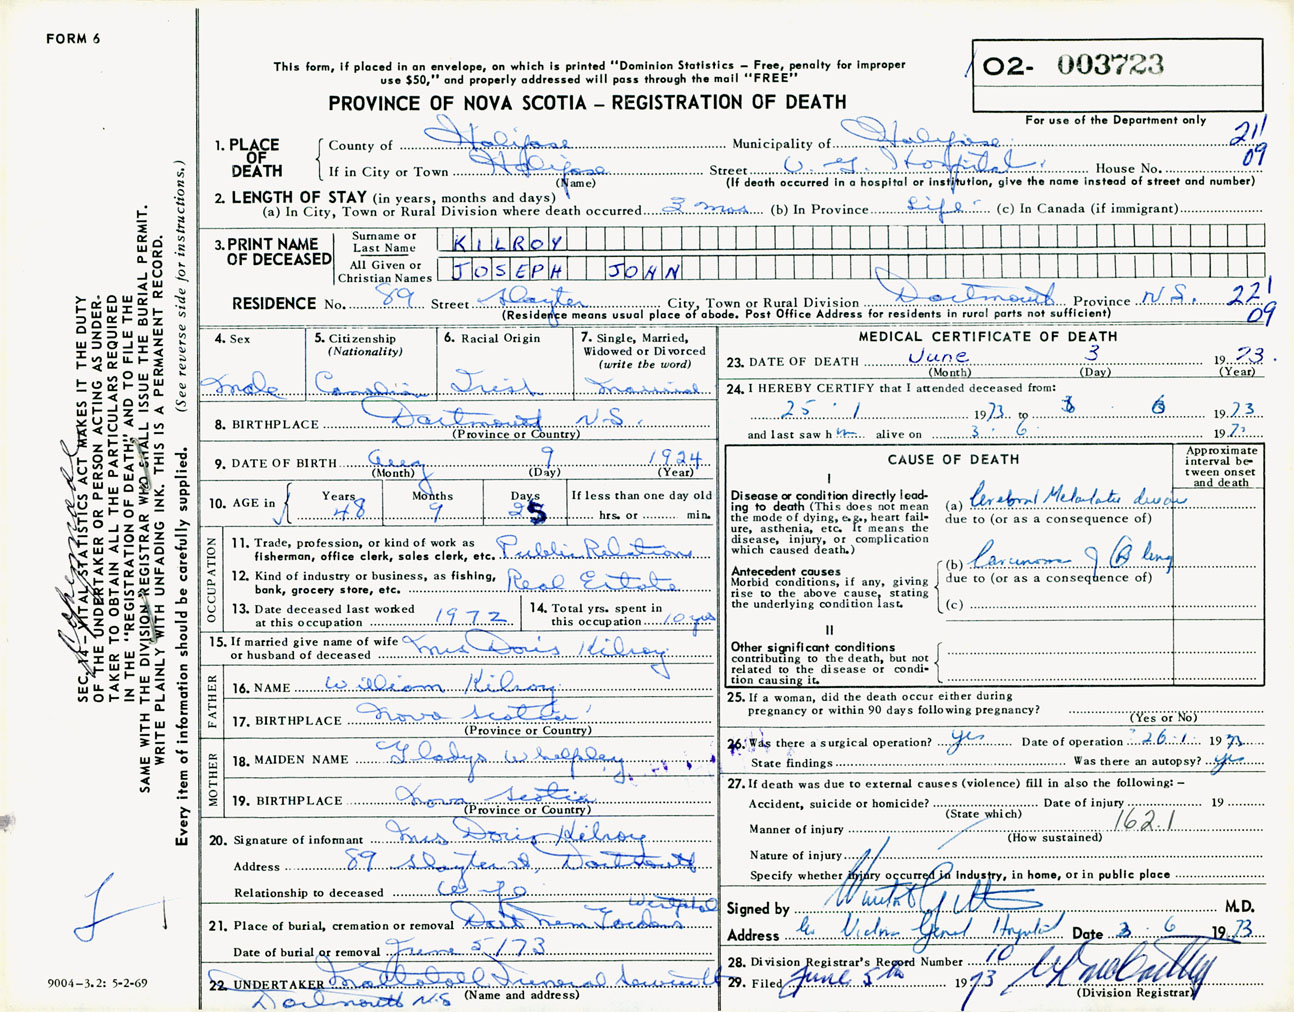 FORM 6
This form, if placed in an envelope, on which is printed "Dominion Statistics – Free, penalty for improper
use $50," and properly addressed will pass through the mail "FREE"
PROVINCE OF NOVA SCOTIA – REGISTRATION OF DEATH
O2- 003723
For use of the Department only
211
09
1. PLACE OF DEATH
County of Halifax Municipality of Halifax
If in City or Town Halifax Street V. G. Hospital. House No.
(Name) (If death occurred in a hospital or institution, give the name instead of street and number)
2. LENGTH OF STAY (in years, months and days)
(a) In City, Town or Rural Division where death occurred 3 mos (b) In Province Life (c) In Canada (if immigrant)
3. PRINT NAME OF DECEASED
Surname or Last Name KILROY
All Given or Christian Names JOSEPH JOHN
RESIDENCE No. 89 Street Slayter City, Town or Rural Division Dartmouth Province N.S.
(Residence means usual place of abode. Post Office Address for residents in rural parts not sufficient)
221
09
4. Sex
Male
5. Citizenship
(Nationality)
Canadian
6. Racial Origin
Irish
7. Single, Married,
Widowed or Divorced
(write the word)
Married
8. BIRTHPLACE Dartmouth N.S.
(Province or Country)
9. DATE OF BIRTH Aug 9 1924
(Month) (Day) (Year)
10. AGE in
Years 48
Months 9
Days 25
If less than one day old
hrs. or min.
OCCUPATION
11. Trade, profession, or kind of work as
fisherman, office clerk, sales clerk, etc. Public Relations
12. Kind of industry or business, as fishing,
bank, grocery store, etc. Real Estate
13. Date deceased last worked
at this occupation 1972
14. Total yrs. spent in
this occupation 10 yrs
15. If married give name of wife
or husband of deceased Mrs Doris Kilroy
FATHER
16. NAME William Kilroy
17. BIRTHPLACE Nova Scotia
(Province or Country)
MOTHER
18. MAIDEN NAME Gladys Whelpley
19. BIRTHPLACE Nova Scotia
(Province or Country)
20. Signature of informant Mrs Doris Kilroy
Address 89 Slayter St, Dartmouth
Relationship to deceased Wife
21. Place of burial, cremation or removal Dart Mem Gardens
Westphal
Date of burial or removal June 5/73
22. UNDERTAKER Mattatall Funeral Service
Dartmouth N.S (Name and address)
MEDICAL CERTIFICATE OF DEATH
23. DATE OF DEATH June 3 1973.
(Month) (Day) (Year)
24. I HEREBY CERTIFY that I attended deceased from:
25 . 1 1973 to 3 6 1973
and last saw him alive on 3 . 6 197
CAUSE OF DEATH
Approximate
interval be-
tween onset
and death
I
Disease or condition directly lead-
ing to death (This does not mean
the mode of dying, e.g., heart fail-
ure, asthenia, etc. It means the
disease, injury, or complication
which caused death.)
(a) Cerebral Metastatic disease
due to (or as a consequence of)
Antecedent causes
Morbid conditions, if any, giving
rise to the above cause, stating
the underlying condition last.
(b) Carcinoma of (R) lung
due to (or as a consequence of)
(c)
II
Other significant conditions
contributing to the death, but not
related to the disease or condi-
tion causing it.
25. If a woman, did the death occur either during
pregnancy or within 90 days following pregnancy?
(Yes or No)
26. Was there a surgical operation? yes Date of operation 26.1. 1973
State findings Was there an autopsy? yes
27. If death was due to external causes (violence) fill in also the following: –
Accident, suicide or homicide? Date of injury 19
(State which)
Manner of injury 162.1
(How sustained)
Nature of injury
Specify whether injury occurred in industry, in home, or in public place
Signed by M.D.
Address Victoria General Hospital Date 3 6 1973
28. Division Registrar's Record Number 10
29. Filed June 5th 1973
(Division Registrar)
SEC. – VITAL STATISTICS ACT MAKES IT THE DUTY
OF THE UNDERTAKER OR PERSON ACTING AS UNDER-
TAKER TO OBTAIN ALL THE PARTICULARS REQUIRED
IN THE "REGISTRATION OF DEATH," AND TO FILE THE
SAME WITH THE DIVISION REGISTRAR WHO SHALL ISSUE THE BURIAL PERMIT.
WRITE PLAINLY WITH UNFADING INK. THIS IS A PERMANENT RECORD.
Every item of information should be carefully supplied. (See reverse side for instructions.)
9004-3.2: 5-2-69